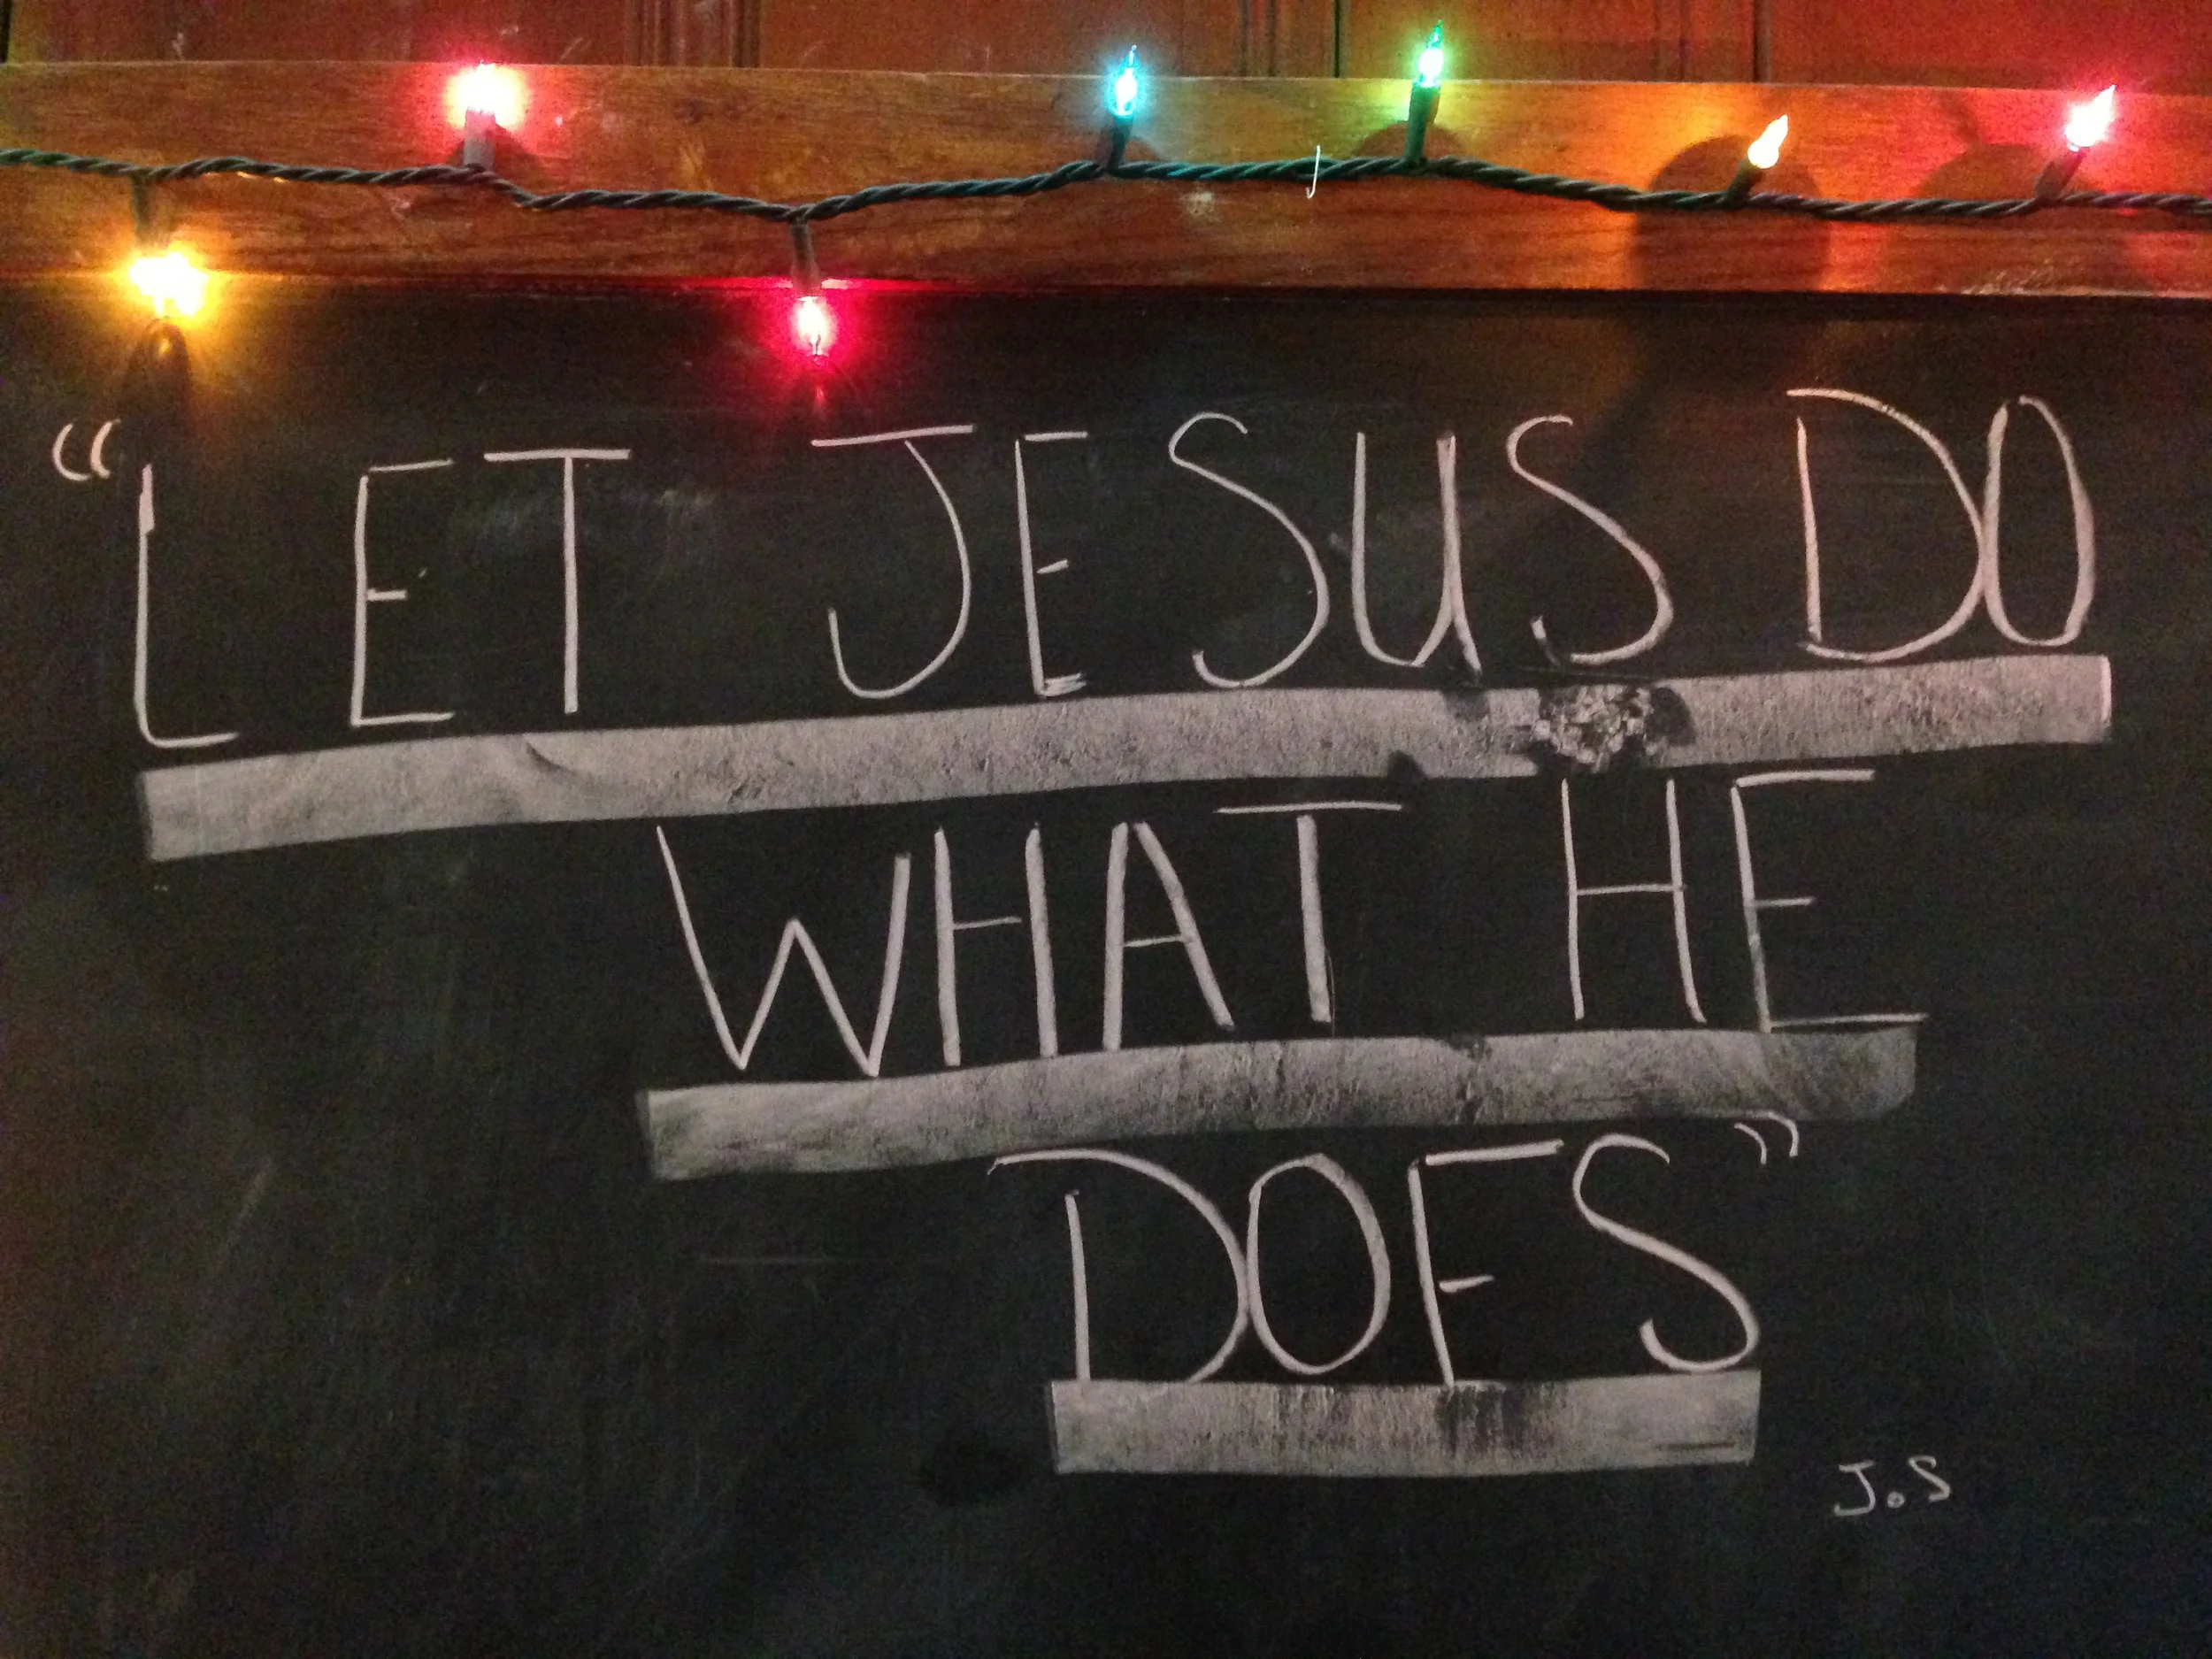 “LET JESUS DO
WHAT HE
DOES”
J.S